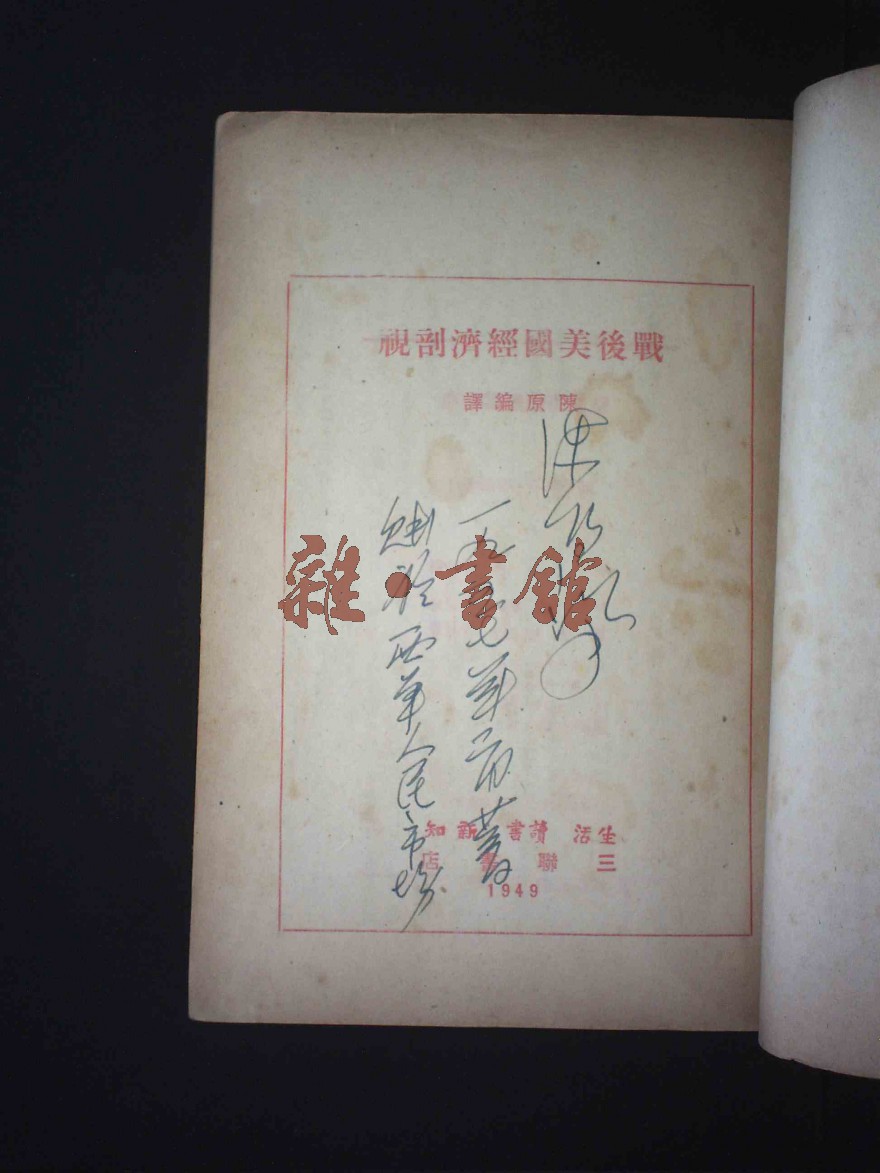 戰後美國經濟剖視
陳原編譯
一九五七年
購於西單人民市場
雜·書館
生活 讀書 新知
三聯書店
1949